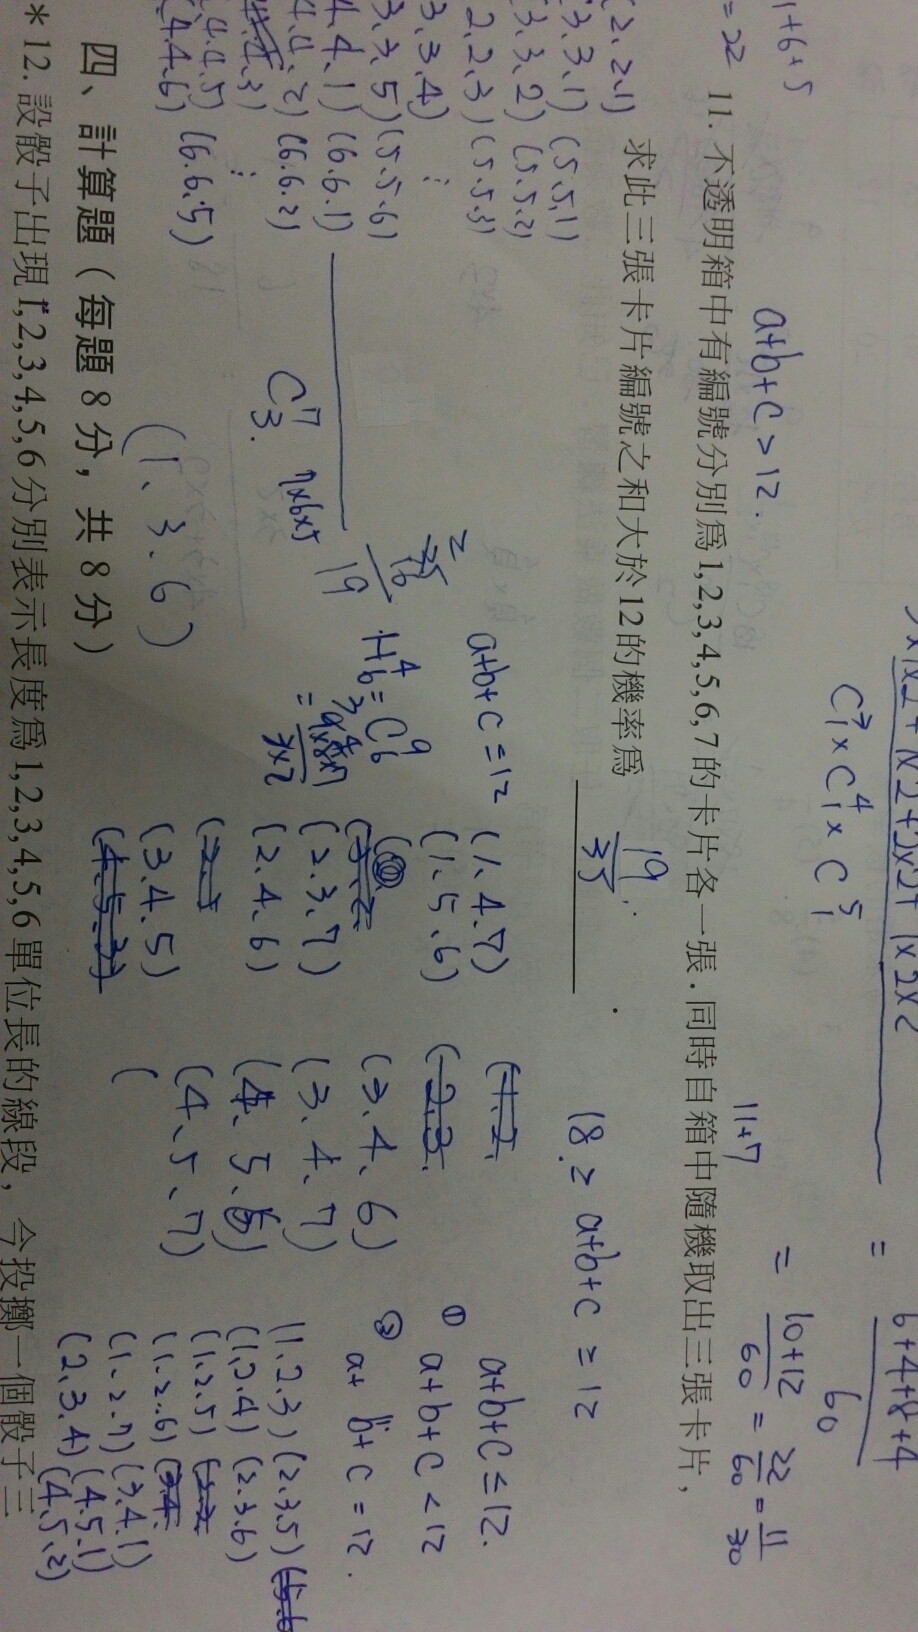 1+6+5
= 22
a+b+c > 12.
C³₁ × C⁴₁ × C⁵₁
= 6+4+8+4 / 60
= 10+12 / 60 = 22/60 = 11/30
11+7
11. 不透明箱中有編號分別為 1,2,3,4,5,6,7 的卡片各一張. 同時自箱中隨機取出三張卡片,
求此三張卡片編號之和大於 12 的機率為 19/35 .
(2.2.1)
(3.3.1) (5.5.1)
(3.3.2) (5.5.2)
2.2.3) (5.5.3)
3.3.4) ⋮
3.3.5) (5.5.6)
4.4.1) (6.6.1)
4.4.2) (6.6.2)
4.4.3) ⋮
4.4.5)
(4.4.6) (6.6.5)
C⁷₃. 7×6×5
35
16
19
H⁴₆ = C⁹₆
3×2
(1、3、6)
a+b+c = 12
(1.4.7)
(1.5.6)
(2.3.7)
(2.4.6)
(3.4.5)
(4.5.3)
18 ≥ a+b+c ≥ 12
(1.2.
(2.3.
(3、4、6)
(3、4、7)
(4、5、6)
(4、5、7)
(
a+b+c ≤ 12.
① a+b+c < 12
② a+b+c = 12.
(1.2.3) (2.3.5)
(1.2.4) (2.3.6)
(1.2.5)
(1.2.6) (3.4.
(1.2.7) (3.4.1)
(2.3.4) (4.5.1)
(4.5.2)
四、計算題(每題 8 分, 共 8 分)
* 12. 設骰子出現 1,2,3,4,5,6 分別表示長度為 1,2,3,4,5,6 單位長的線段, 今投擲一個骰子三